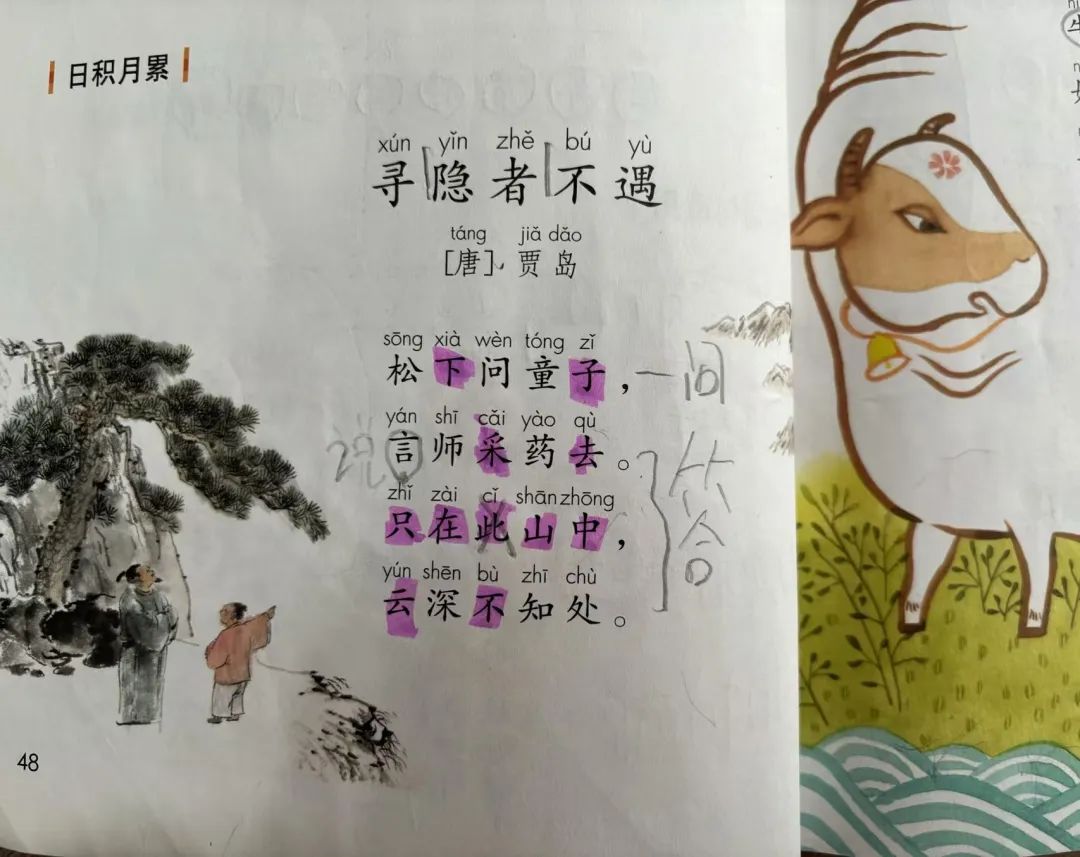 日积月累
xún yǐn zhě bú yù
寻隐者不遇
táng jiǎ dǎo
[唐] 贾岛
sōng xià wèn tóng zǐ
松下问童子， 问
yán shī cǎi yào qù
说 言师采药去。 答
zhǐ zài cǐ shān zhōng
只在此山中，
yún shēn bù zhī chù
云深不知处。
48